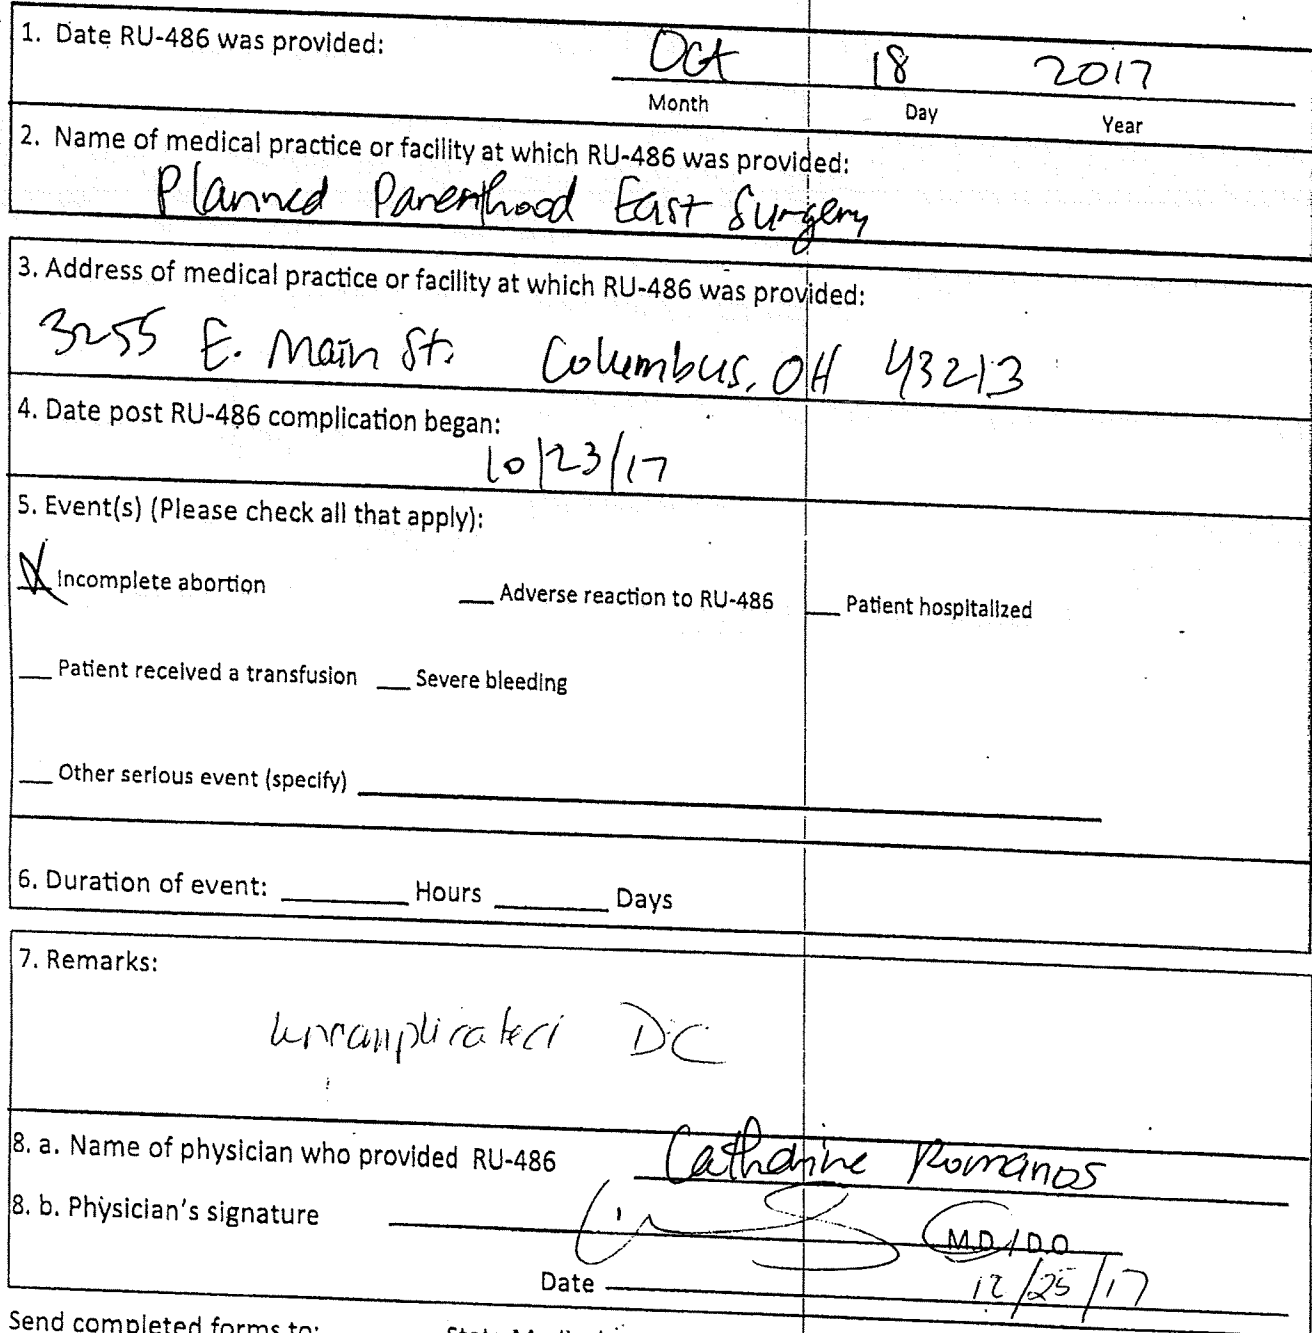 1. Date RU-486 was provided: Oct 18 2017
Month Day Year
2. Name of medical practice or facility at which RU-486 was provided:
Planned Parenthood East Surgery
3. Address of medical practice or facility at which RU-486 was provided:
3255 E. Main St. Columbus, OH 43213
4. Date post RU-486 complication began:
10/23/17
5. Event(s) (Please check all that apply):
X Incomplete abortion ___ Adverse reaction to RU-486 ___ Patient hospitalized
___ Patient received a transfusion ___ Severe bleeding
___ Other serious event (specify) ___
6. Duration of event: ___ Hours ___ Days
7. Remarks:
uncomplicated DC
8. a. Name of physician who provided RU-486 Catherine Romanos
8. b. Physician's signature M.D./D.O
Date 12/25/17
Send completed forms to: